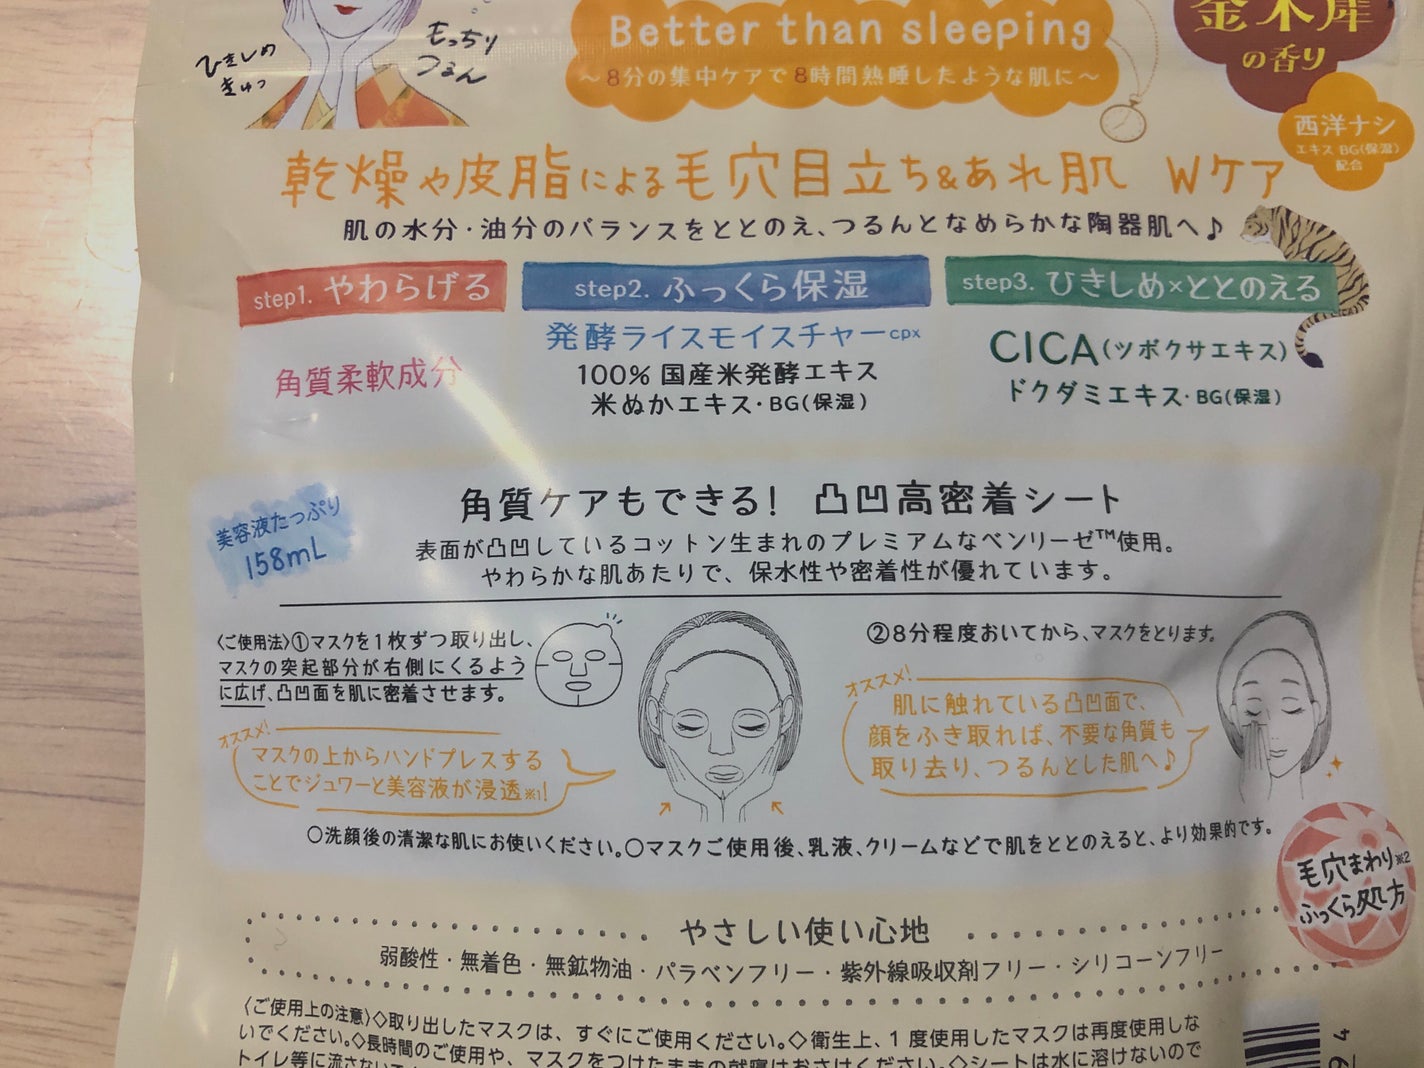 ひきしめ
きゅっ
もっちり
つるん
Better than sleeping
〜8分の集中ケアで8時間熟睡したような肌に〜
金木犀
の香り
西洋ナシ
エキス BG(保湿)
配合
乾燥や皮脂による毛穴目立ち&あれ肌 Wケア
肌の水分・油分のバランスをととのえ、つるんとなめらかな陶器肌へ♪
step1. やわらげる
角質柔軟成分
step2. ふっくら保湿
発酵ライスモイスチャーcpx
100% 国産米発酵エキス
米ぬかエキス・BG(保湿)
step3. ひきしめ×ととのえる
CICA(ツボクサエキス)
ドクダミエキス・BG(保湿)
美容液たっぷり
158mL
角質ケアもできる! 凸凹高密着シート
表面が凸凹しているコットン生まれのプレミアムなベンリーゼ™使用。
やわらかな肌あたりで、保水性や密着性が優れています。
〈ご使用法〉①マスクを1枚ずつ取り出し、
マスクの突起部分が右側にくるよう
に広げ、凸凹面を肌に密着させます。
オススメ!
マスクの上からハンドプレスする
ことでジュワーと美容液が浸透※1!
②8分程度おいてから、マスクをとります。
オススメ!
肌に触れている凸凹面で、
顔をふき取れば、不要な角質も
取り去り、つるんとした肌へ♪
〇洗顔後の清潔な肌にお使いください。〇マスクご使用後、乳液、クリームなどで肌をととのえると、より効果的です。
毛穴まわり※2
ふっくら処方
やさしい使い心地
弱酸性・無着色・無鉱物油・パラベンフリー・紫外線吸収剤フリー・シリコーンフリー
〈ご使用上の注意〉◇取り出したマスクは、すぐにご使用ください。◇衛生上、1度使用したマスクは再度使用しな
いでください。◇長時間のご使用や、マスクをつけたままの就寝はおさけください。◇シートは水に溶けないので
トイレ等に流さない